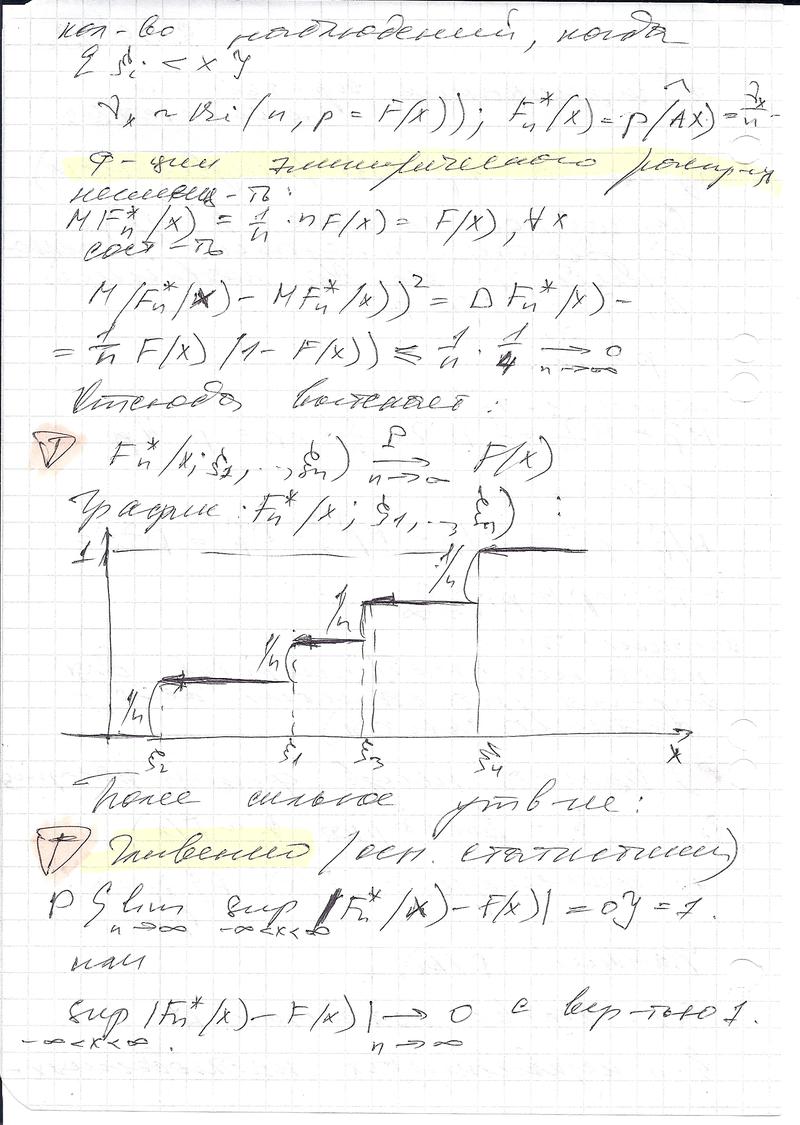 кол-во наблюдений, когда
{ξᵢ < x}
νₓ ~ Bi(n, p = F(x)); Fₙ*(x) = p̂(Aₓ) = νₓ/n -
ф-ции эмпирического распр-я
несмещ-ть:
M Fₙ*(x) = 1/n · nF(x) = F(x), ∀x
сост-ть
M(Fₙ*(x) - MFₙ*(x))² = D Fₙ*(x) -
= 1/n F(x)(1 - F(x)) ≤ 1/n · 1/4 → 0 n→∞
Отсюда вытекает:
Т Fₙ*(x; ξ₁, .., ξₙ) P→ n→∞ F(x)
График: Fₙ*(x; ξ₁, .., ξₙ) :
1 1/n
1/n
1/n
1/n
ξ₂ ξ₁ ξ₃ ξ₄ x
Более сильное утв-ие:
Т Гливенко (осн. статистики)
P{lim n→∞ sup -∞<x<∞ |Fₙ*(x) - F(x)| = 0} = 1.
или
sup -∞<x<∞ |Fₙ*(x) - F(x)| → n→∞ 0 с вер-тью 1.